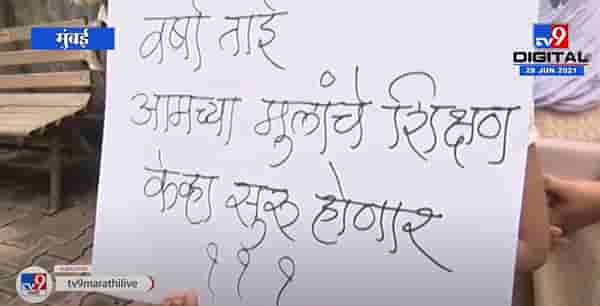 मुंबई
TV9
DIGITAL
29 JUN 2021
वर्षा ताई
आमच्या मुलांचे शिक्षण
केव्हा सुरु होणार
? ? ?
SUBSCRIBE
TV9
मराठी
tv9marathilive